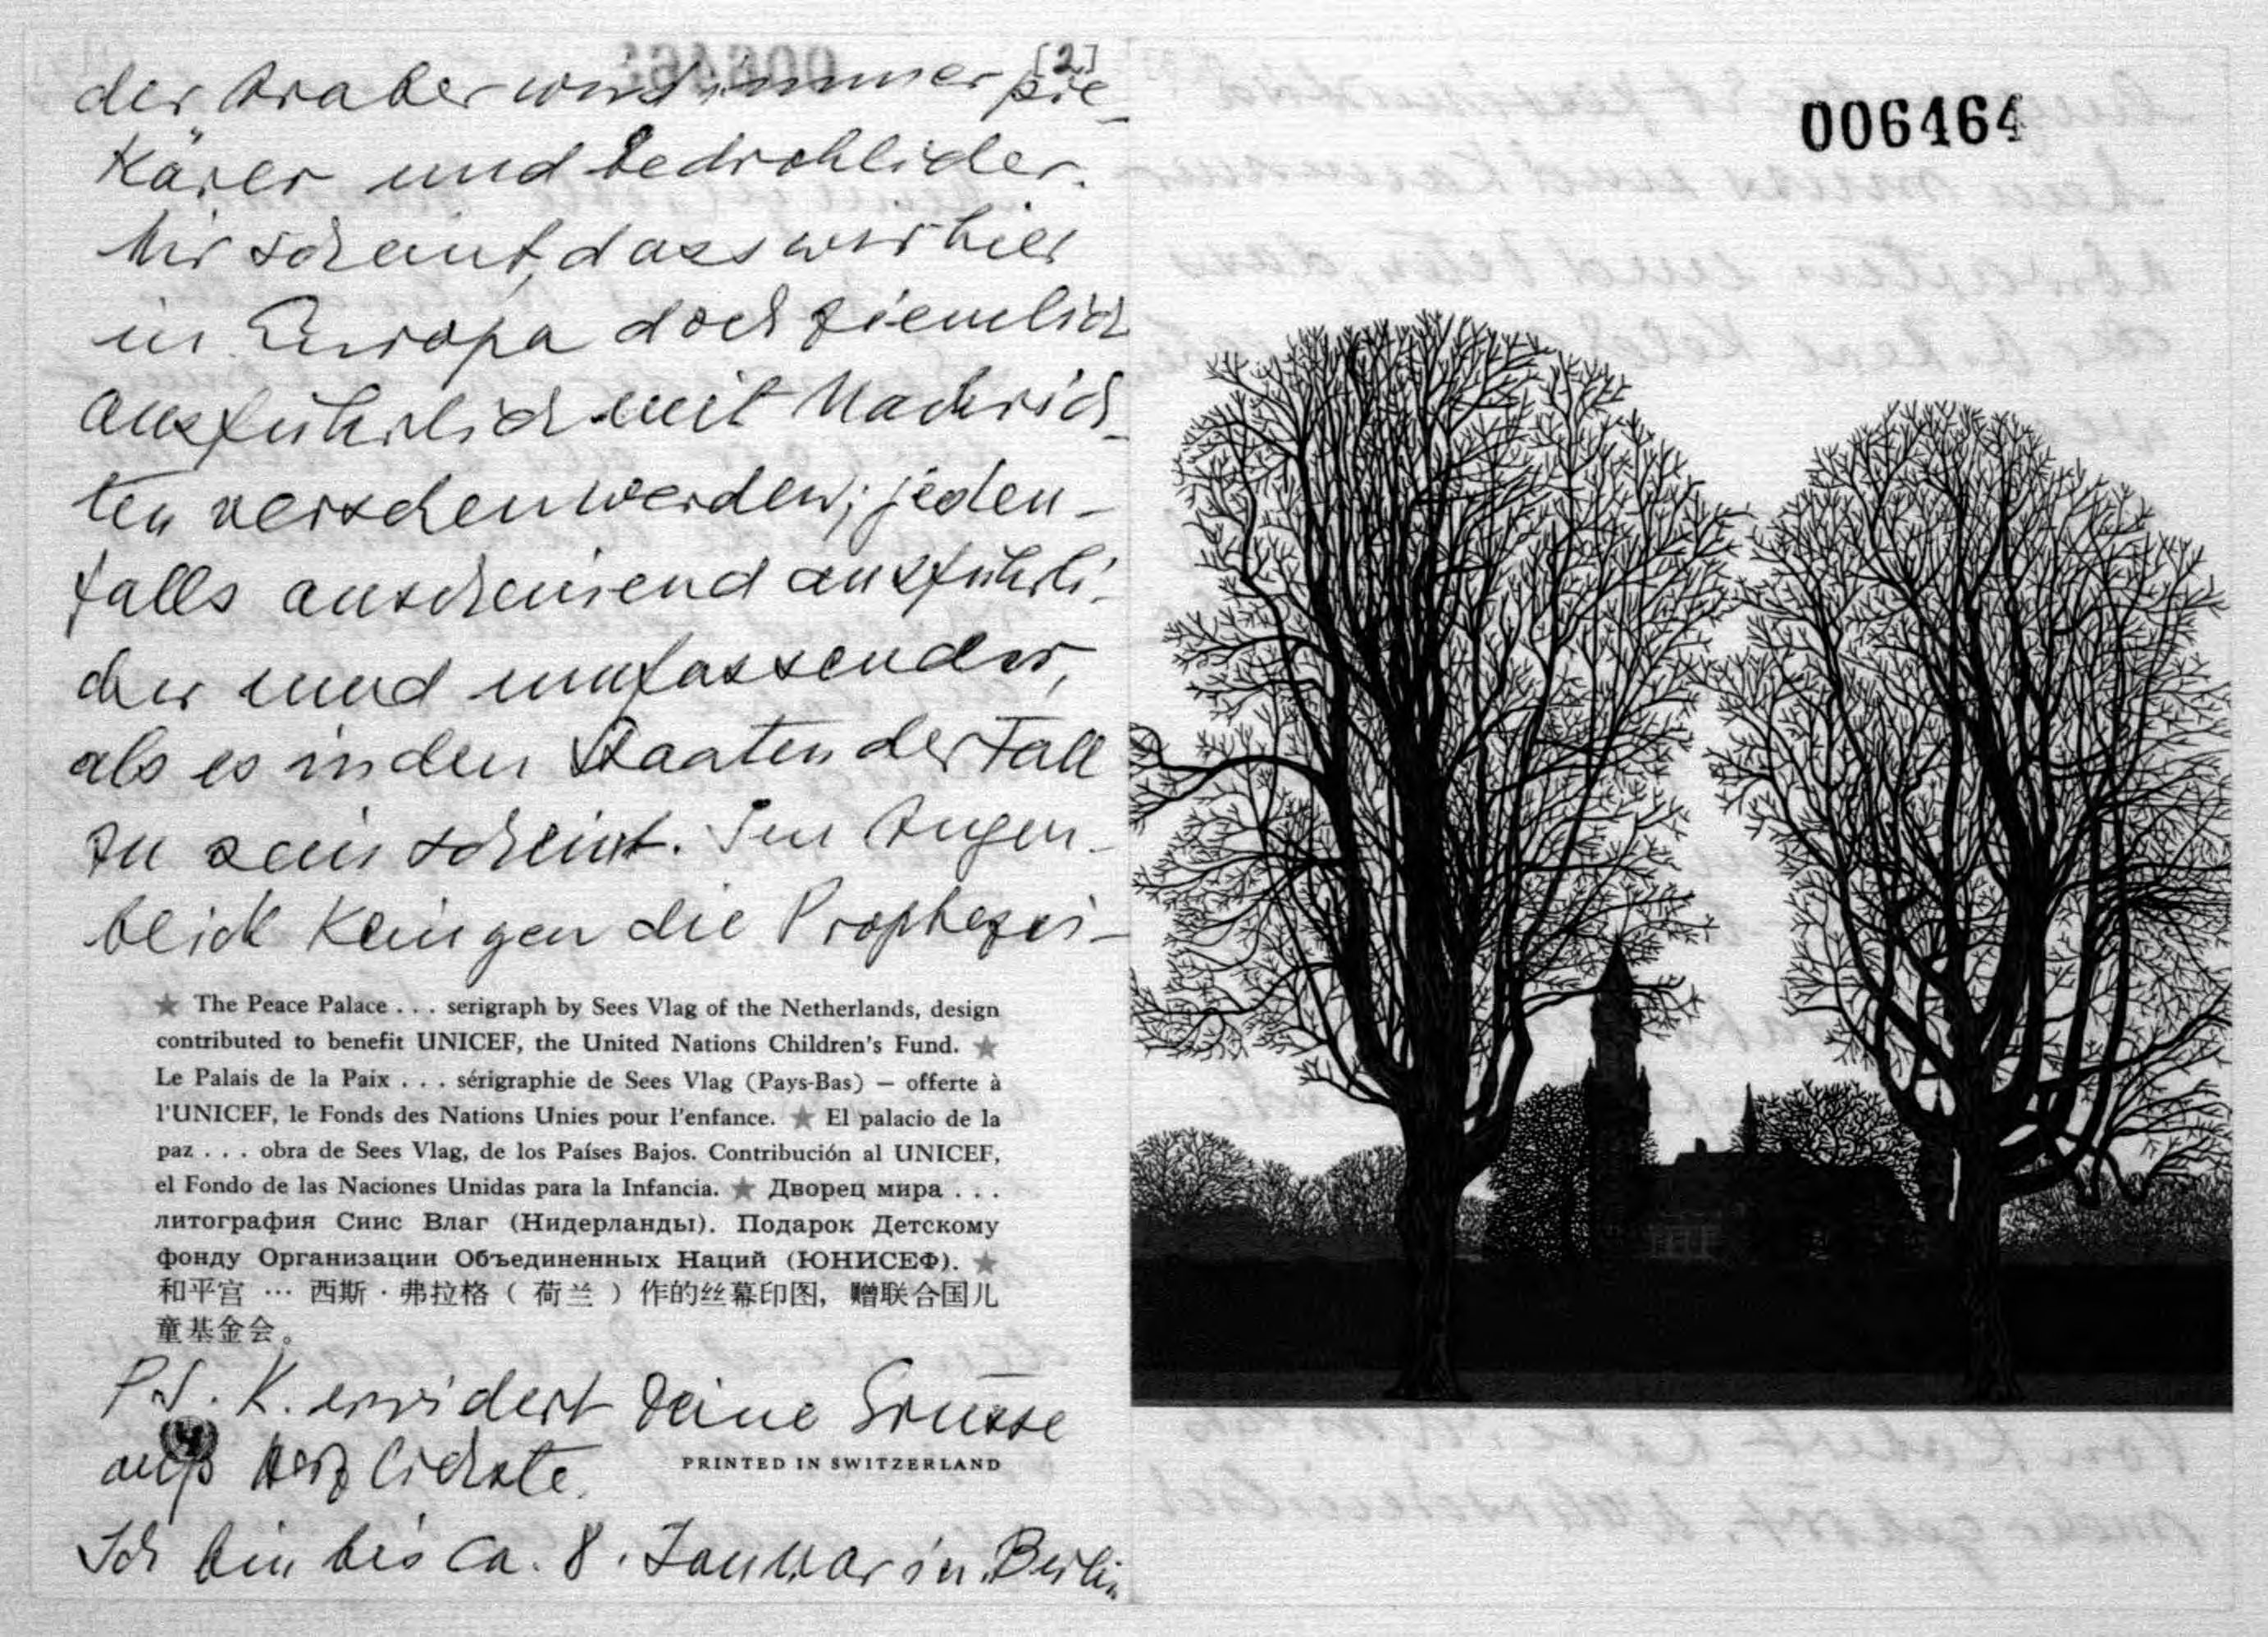 [2]
der Araber wird immer pre-
kärer und bedrohlicher.
Mir scheint, dass wir hier
in Europa doch ziemlich
ausführlich mit Nachrich-
ten versehen werden; jeden-
falls anscheinend ausführli-
cher und umfassender,
als es in den Staaten der Fall
zu sein scheint. Im Augen-
blick klingen die Prophezei-
★ The Peace Palace . . . serigraph by Sees Vlag of the Netherlands, design
contributed to benefit UNICEF, the United Nations Children's Fund. ★
Le Palais de la Paix . . . sérigraphie de Sees Vlag (Pays-Bas) — offerte à
l'UNICEF, le Fonds des Nations Unies pour l'enfance. ★ El palacio de la
paz . . . obra de Sees Vlag, de los Países Bajos. Contribución al UNICEF,
el Fondo de las Naciones Unidas para la Infancia. ★ Дворец мира . . .
литография Сиис Влаг (Нидерланды). Подарок Детскому
фонду Организации Объединенных Наций (ЮНИСЕФ). ★
和平宫 … 西斯·弗拉格（荷兰）作的丝幕印图，赠联合国儿
童基金会。
P.S. K. erwidert Deine Grüsse
aufs herzlichste.
PRINTED IN SWITZERLAND
Ich bin bis ca. 8. Januar in Berlin
006464